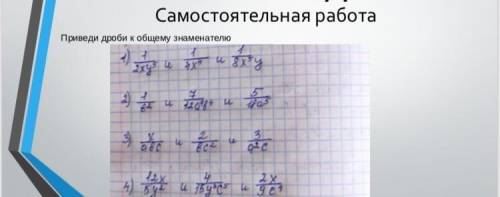 Самостоятельная работа
Приведи дроби к общему знаменателю
1) 1/2xy³ и 1/4x⁴ и 1/8x⁴y
2) 1/b² и 7/12a³b⁴ и 5/18a³
3) x/abc и 2/bc² и 3/a²c
4) 12x/5y² и 4/15y³c⁵ и 2x/9c⁷